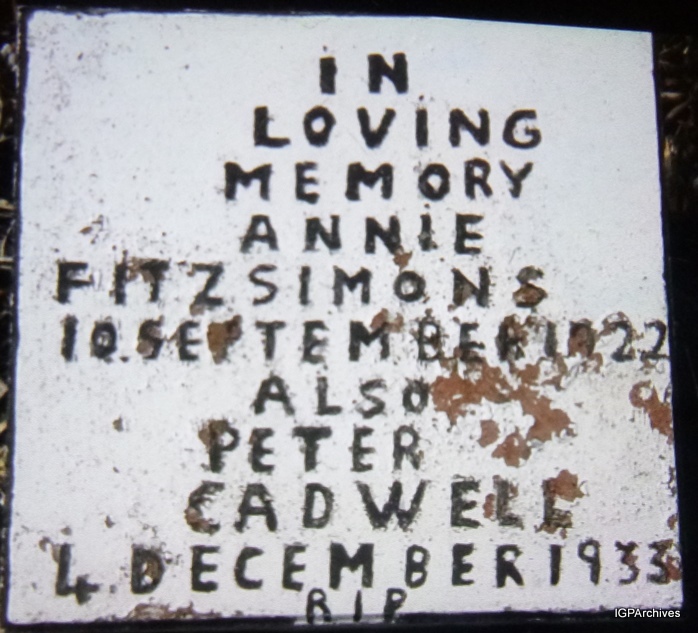 IN
LOVING
MEMORY
ANNIE
FITZSIMONS
10.SEPTEMBER 1922
ALSO
PETER
CADWELL
4.DECEMBER 1933
RIP
IGPArchives